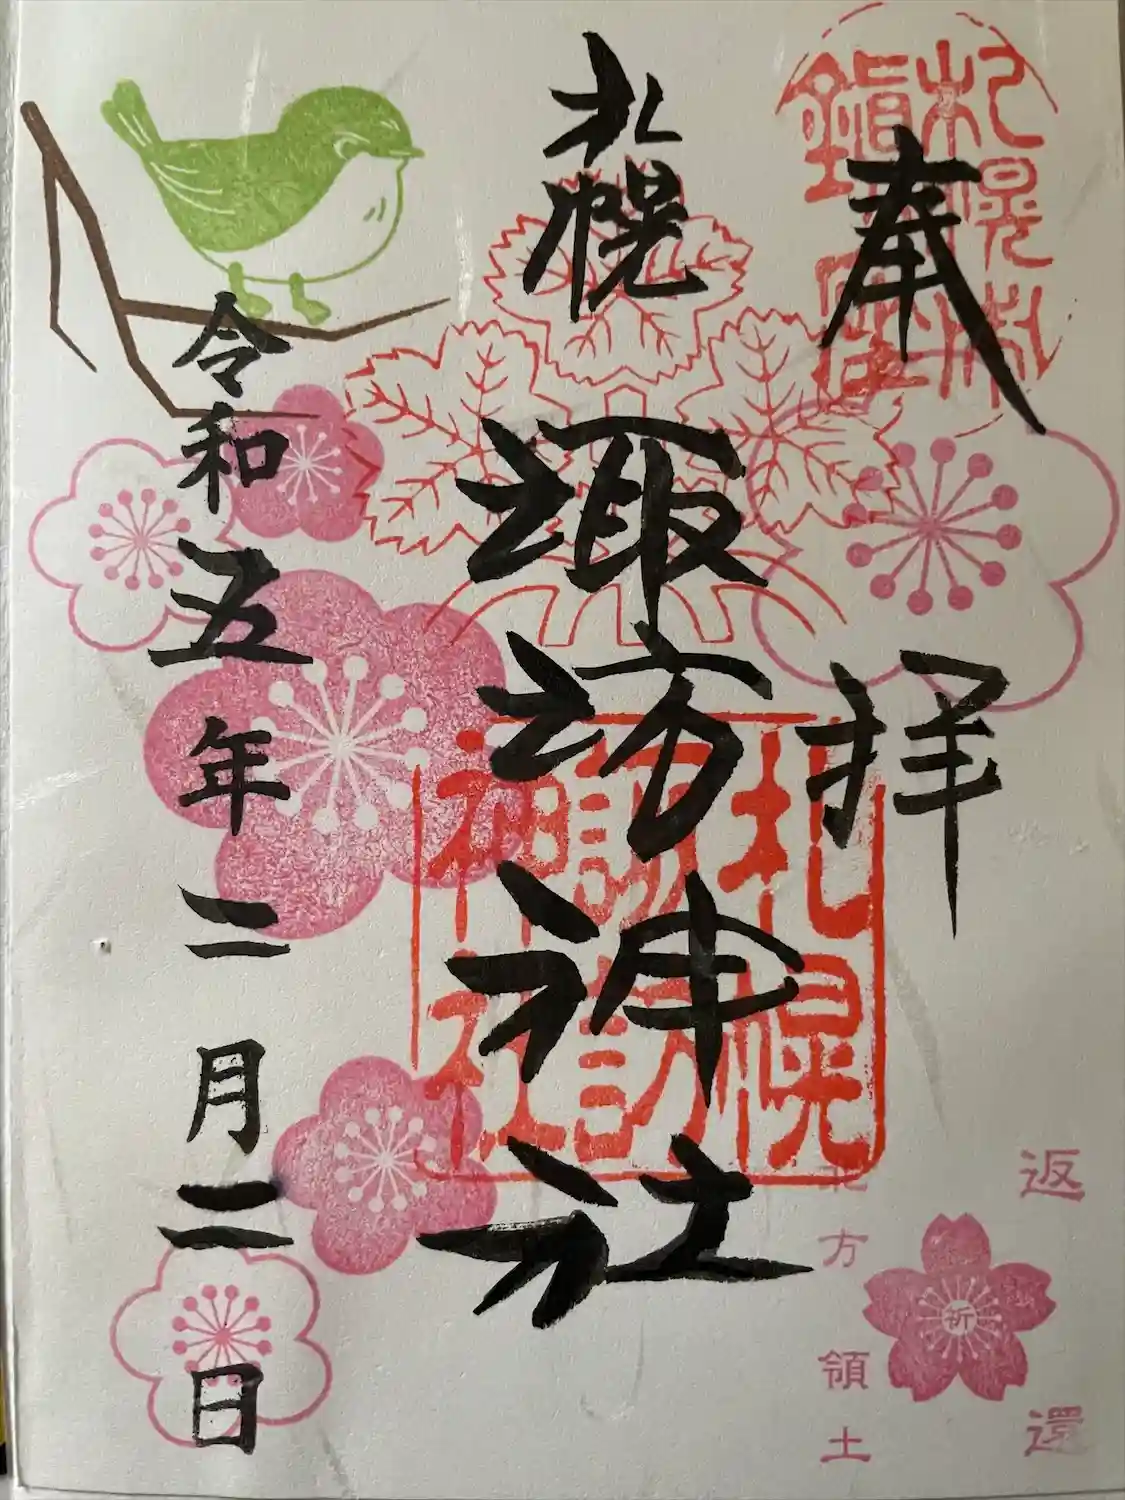 奉拝
札幌
諏訪神社
令和五年二月二日
札幌
諏訪
神社
祈
返還
北方領土